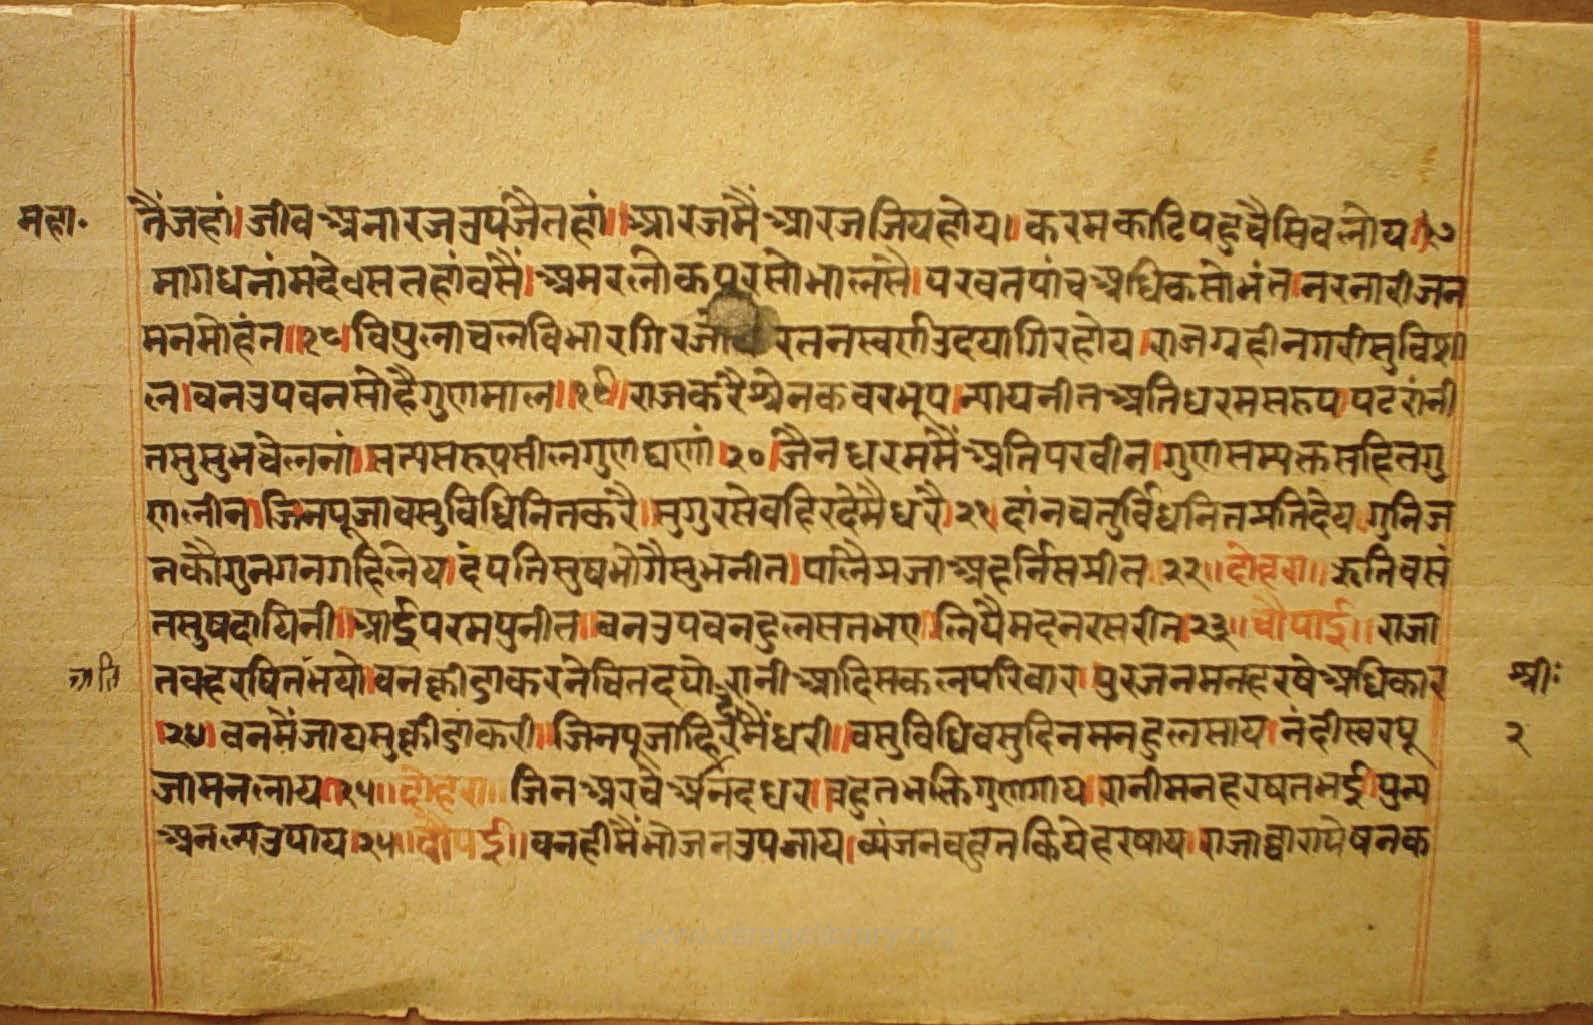 महा॰
तैंजहां।जीवअनारजउपजैतहां॥आरजमैंआरजजियहोय॥करमकाटिपहुचैसिवलोय॥१७
मागधनांमदेससतहांवसैं।अमरलोकपुरसोभालसै।परवतपांचअधिकसोभंत।नरनारीजन
मनमोहंन॥१८।विपुलाचलविभारगिर रतनस्वर्णउदयागिरहोय।राजग्रहीनगरीसुविशा
ल।वनउपवनसोहैगुणमाल॥१९॥राजकरैश्रेनकवरभूप।न्यायनीतअतिधरमसरूप।पटरांनी
तसुसुभचेलनां॥सत्यसरूपसीलगुणघणां।२०।जैनधरममैंअतिपरवीन।गुणसम्यक्तसहितगु
णलीन।जिनपूजावसुविधिनितकरै।सुगुरसेवहिरदैमैधरै।२१।दांनचतुर्विधनितप्रतिदेय।गुनिज
नकौगुनगनगहिलेय।दंपतिसुषभोगैसुभनीत।पालैप्रजाअहर्निसप्रीत २२॥दोहरा॥रूतिवसं
तसुषदायिनी॥आईपरमपुनीत॥वनउपवनहुलसतभए।लियैमदनरसरीत।२३॥चौपाई॥राजा
तवहरषितभयो।वनक्रीडाकरनेचितदयो।रानीआदिसकलपरिवार।पुरजनमनहरषेअधिकार
।२४।वनमैंजायसुक्रीडाकरी।जिनपूजाहिरदैमैंधरी॥वसुविधिवसुदिनमनहुलसाय।नंदीस्वरपू
जामनलाय।२५॥दोहरा॥जिनअरचैअनंदधर।वहुतभक्तिगुणगाय।रानीमनहरषतभई।पुन्य
अनत्यउपाय।२५॥चौपई॥वनहीमैंभोजनउपजाय।व्यंजनवहुतकियेहरषाय।राजाद्वारापेषनक
श्रीः
२